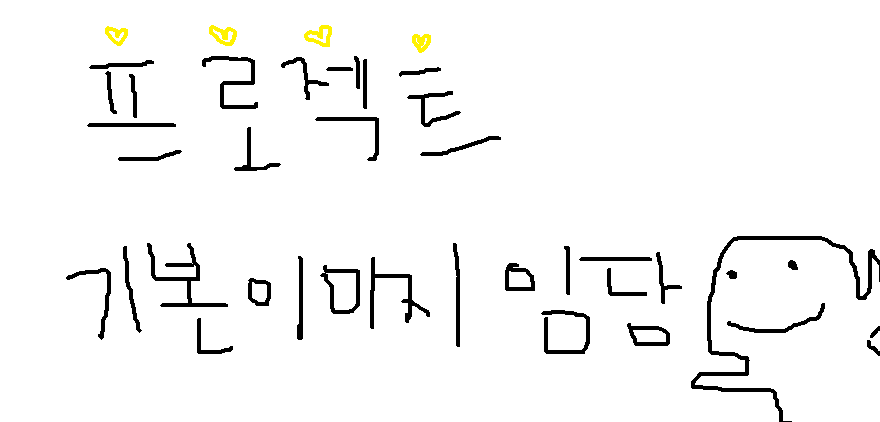 프로젝트
기본이미지 임담